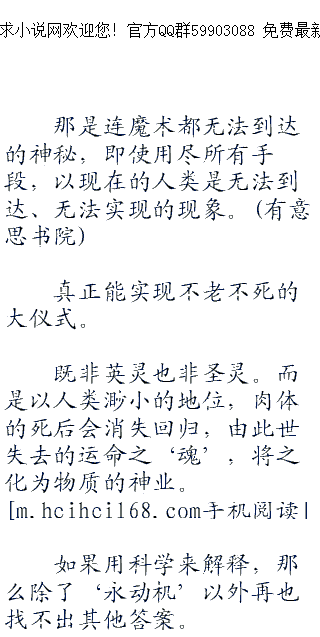 求小说网欢迎您! 官方QQ群59903088 免费最新
那是连魔术都无法到达
的神秘，即使用尽所有手
段，以现在的人类是无法到
达、无法实现的现象。(有意
思书院)
真正能实现不老不死的
大仪式。
既非英灵也非圣灵。而
是以人类渺小的地位，肉体
的死后会消失回归，由此世
失去的运命之‘魂’，将之
化为物质的神业。
[m.hcihci168.com手机阅读|
如果用科学来解释，那
么除了‘永动机’以外再也
找不出其他答案。